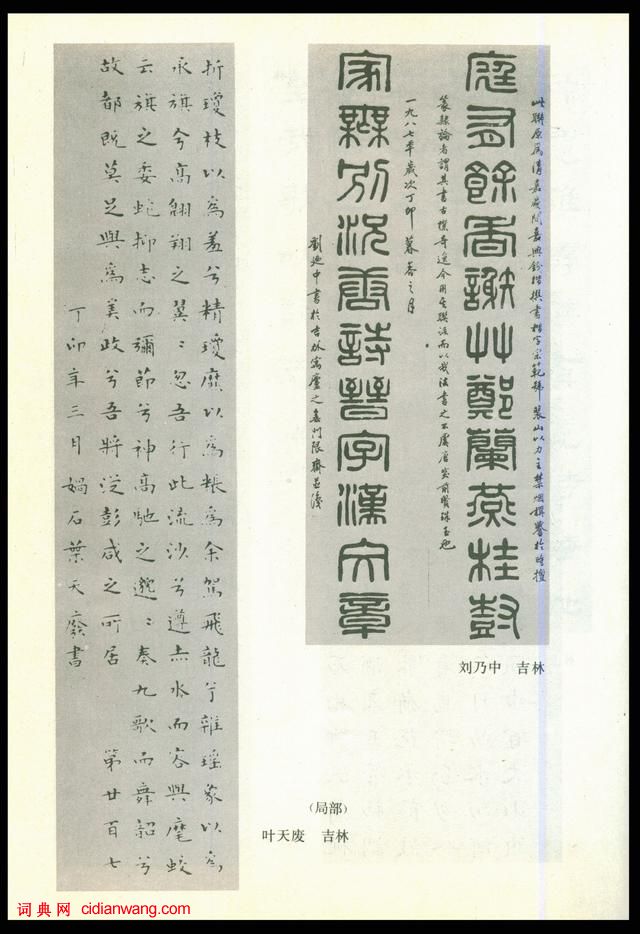 此聯原爲清嘉慶間嘉興錢楷撰書楷字宗範號裴山以力主禁烟撰譽於時擅
庭有餘香謝艸鄭蘭燕桂樹
篆隸論者謂其書古樸奇逸今用其聯語而以我法書之不虞唐突前賢珠玉也
家無別況唐詩晉字漢文章
一九八七年歲次丁卯暮春之月
劉迺中書於吉林寓廬之門限齋並識
刘乃中 吉林
折瓊枝以爲羞兮精瓊爢以爲粻爲余駕飛龍兮雜瑤象以爲
承旗兮高翱翔之翼〻忽吾行此流沙兮遵赤水而容與麾蛟
云旗之委蛇抑志而彌節兮神高馳之邈〻奏九歌而舞韶兮
故都既莫足與爲美政兮吾將從彭咸之所居 第廿百七
丁卯年三月 石葉天廢書
（局部）
叶天废 吉林
词典网 cidianwang.com